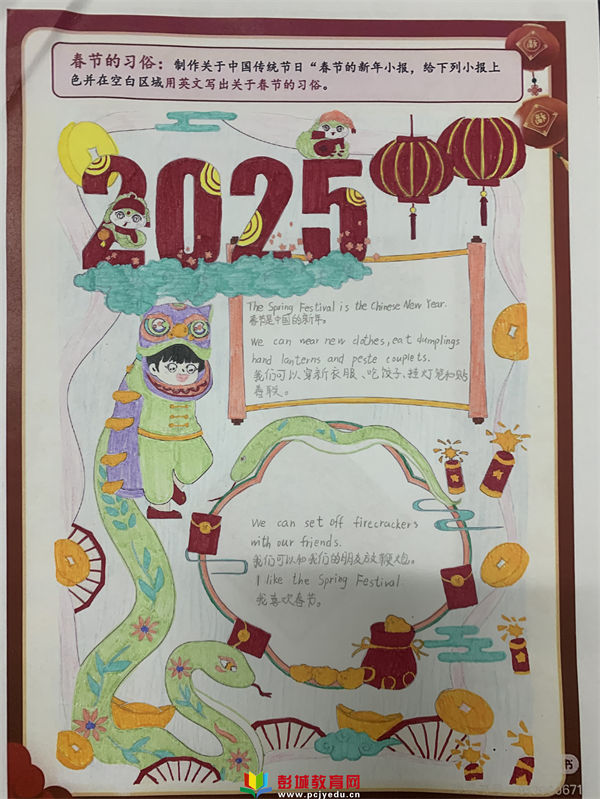 春节的习俗：制作关于中国传统节日“春节的新年小报，给下列小报上
色并在空白区域用英文写出关于春节的习俗。
2025
The Spring Festival is the Chinese New Year.
春节是中国的新年。
We can wear new clothes, eat dumplings
hand lanterns and peste couplets.
我们可以穿新衣服、吃饺子、挂灯笼和贴
春联。
We can set off firecrackers
with our friends.
我们可以和我们的朋友放鞭炮。
I like the Spring Festival
我喜欢春节。
彭城教育网
www.pcjyedu.cn